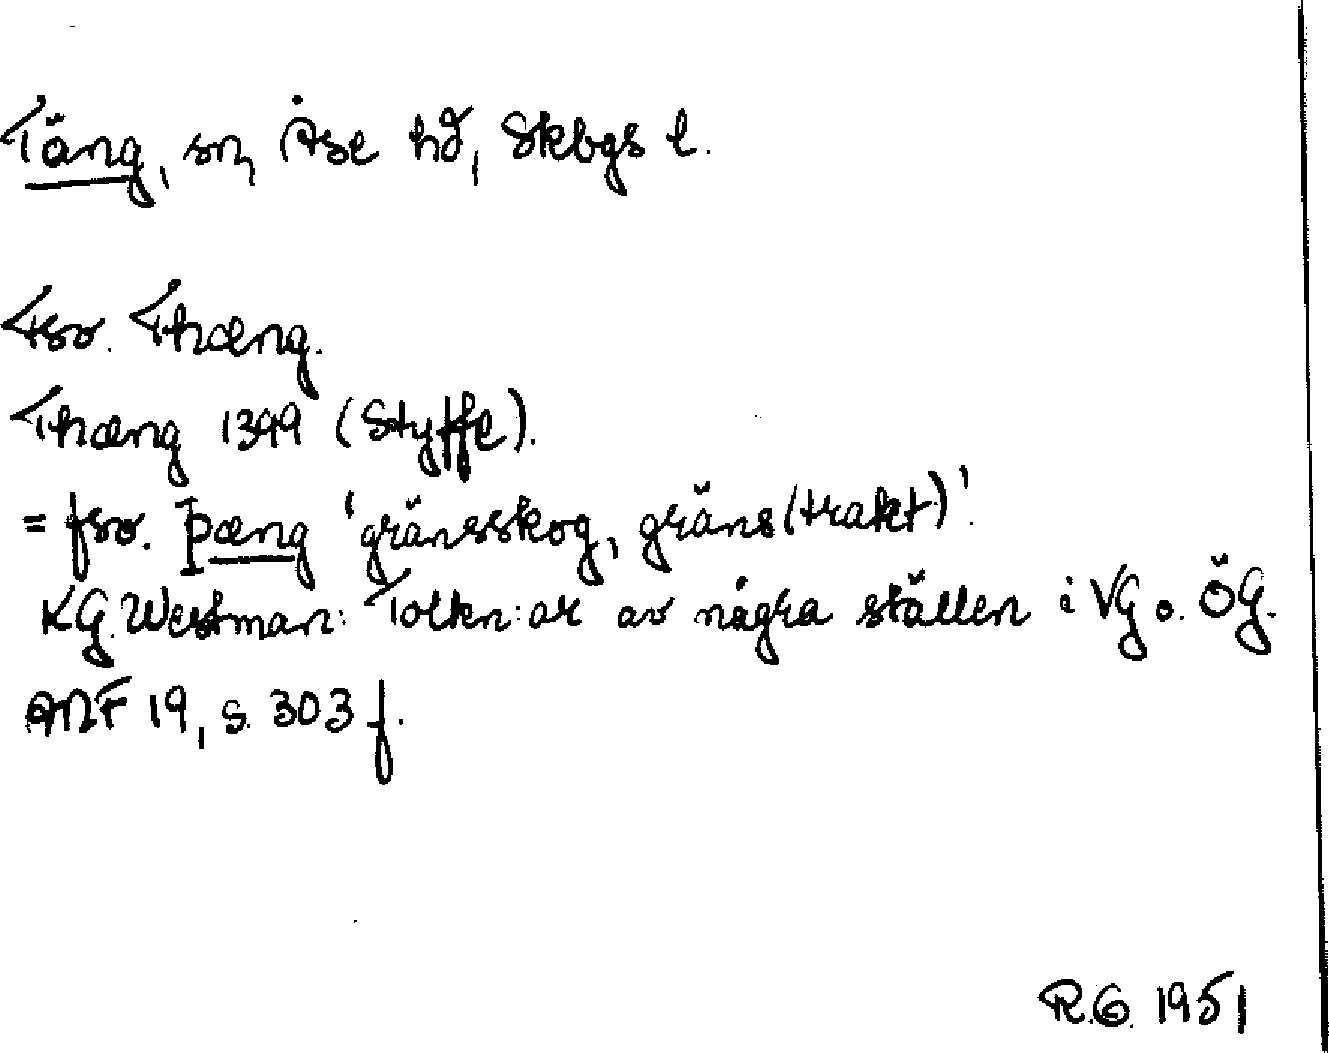 Täng, sn, Åse hd, Skbgs l.
Fsv. Thæng.
Thæng 1399 (Styffe).
= fsv. þæng 'gränsskog, gräns(trakt)'.
KG. Westman: Tolkn:ar av några ställen i VG o. ÖG.
ANF 19, s. 303 f.
R.G. 1951